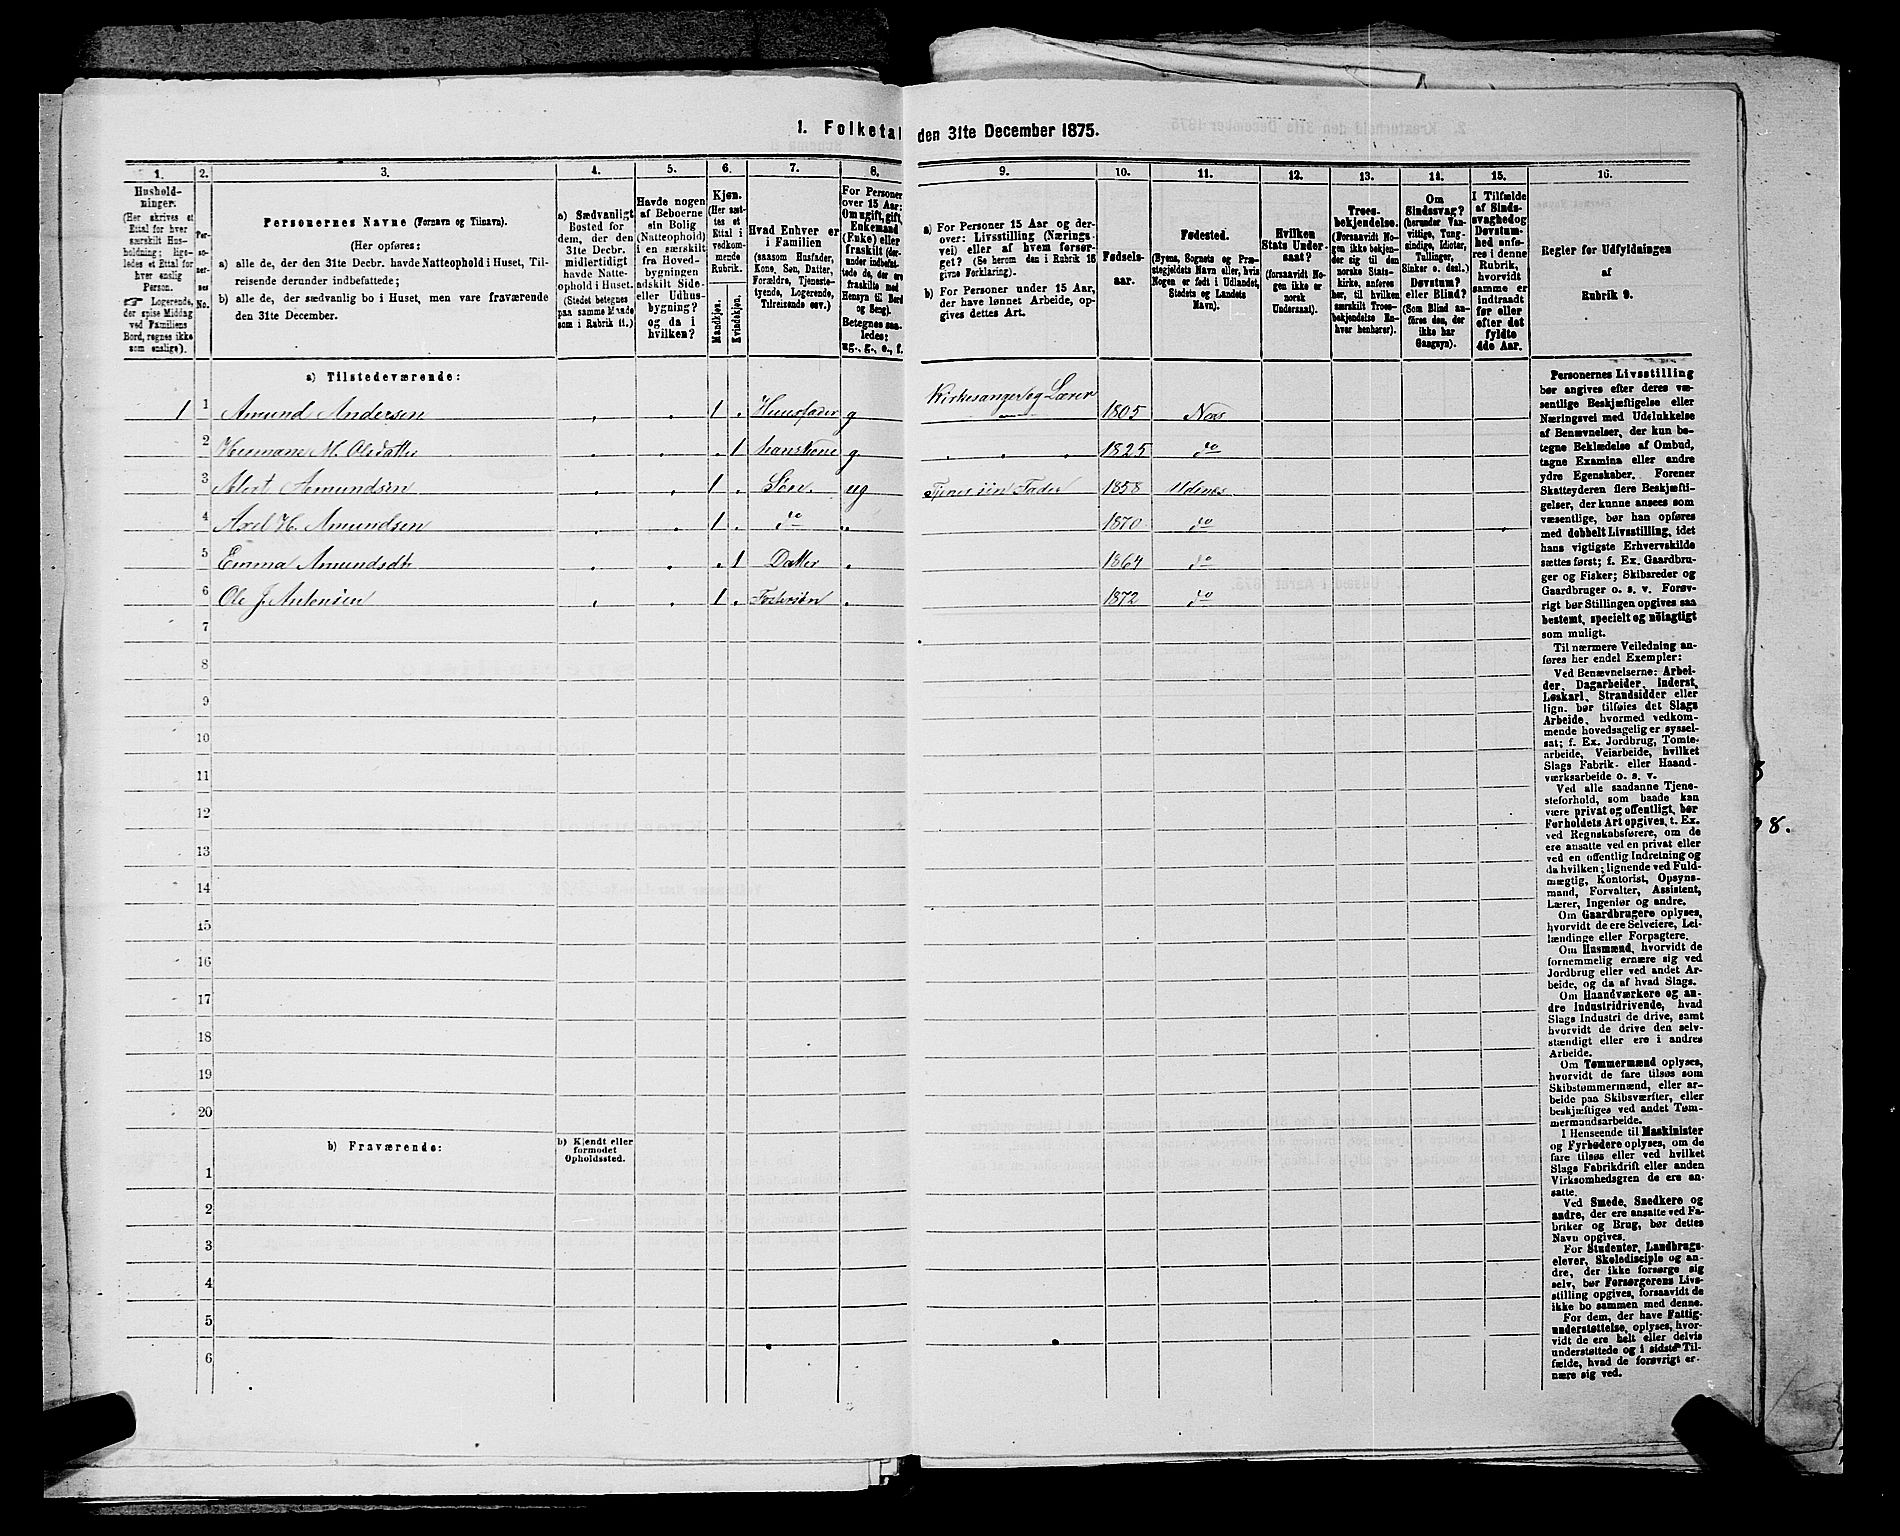 1. Folketal den 31te December 1875.
1. 2. 3. 4. 5. 6. 7. 8. 9. 10. 11. 12. 13. 14. 15. 16.
Hushold-
ninger.
(Her skrives et
Ettal for hver
særskilt Hus-
holdning; lige-
ledes et Ettal for
hver enslig
Person.
☞ Logerende,
der spise Middag
ved Familiens
Bord, regnes ikke
som enslige).
Per-
soner-
nes-
No.
Personernes Navne (Fornavn og Tilnavn).
(Her opføres:
a) alle de, der den 31te Decbr. havde Natteophold i Huset, Til-
reisende derunder indbefattede;
b) alle de, der sædvanlig bo i Huset, men vare fraværende
den 31te December.
a) Sædvanligt
Bosted for
dem, der den
31te Decbr.
midlertidigt
havde Natte-
ophold i Huset.
(Stedet betegnes
paa samme Maade
som i Rubrik 11.)
Havde nogen
af Beboerne
sin Bolig
(Natteophold)
i en særskilt
fra Hoved-
bygningen
adskilt Side-
eller Udhus-
bygning?
og da i
hvilken?
Kjøn.
(Her sæt-
tes et
Ettal i
vedkom-
mende
Rubrik.
Mandkjøn.
Kvindekjøn.
Hvad Enhver er
i Familien
(saasom Husfader,
Kone, Søn, Datter,
Forældre, Tjeneste-
tyende, Logerende,
Tilreisende osv.)
For Personer
over 15 Aar:
Om ugift, gift,
Enkemand
(Enke) eller
fraskilt (der-
under indbefat-
tede de, der ere
fraskilte med
Hensyn til Bord
og Seng).
Betegnes saa-
ledes:
ug., g., e., f.
a) For Personer 15 Aar og der-
over: Livsstilling (Nærings-
vei) eller af hvem forsør-
get? (Se herom den i Rubrik 16
givne Forklaring).
b) For Personer under 15 Aar,
der have lønnet Arbeide, op-
gives dettes Art.
Fødsels-
aar.
Fødested.
(Byens, Sognets og Præ-
stegjeldets Navn eller, hvis
Nogen er født i Udlandet,
Stedets og Landets
Navn).
Hvilken
Stats Under-
saat?
(forsaavidt No-
gen ikke er
norsk
Undersaat).
Troes-
bekjendelse.
(Forsaavidt No-
gen ikke bekjen-
der sig til den
norske Stats-
kirke, anføres
her, til hvilken
særskilt Troes-
bekjendelse En-
hver henhører).
Om
Sindssvag?
(herunder Van-
vittige, Tung-
sindige, Idioter,
Tullinger,
Sinker o. desl.)
Døvstum?
eller Blind?
(Som Blind an-
føres den, der
ikke har
Gangsyn).
I Tilfælde
af Sinds-
svaghed og
Døvstum-
hed anfø-
res i denne
Rubrik,
hvorvidt
samme er
indtraadt
før eller
efter det
fyldte
4de Aar.
Regler for Udfyldningen
af
Rubrik 9.
a) Tilstedeværende:
1 1 Amund Andersen 1 Huusfader g Kirkesanger og Lærer 1805 Næs
2 Hermane M. Olsdatter 1 hans Kone g 1825 do
3 Albert Amundsen 1 Søn. ug Tjener sin Fader 1858 Udenes
4 Axel H. Amundsen 1 do 1870 do
5 Emma Amundsdt 1 Datter 1864 do
6 Ole J. Antonsen 1 Fostersøn 1872 do
7
8
9
10
11
12
13
14
15
16
17
18
19
20
b) Fraværende:
b) Kjendt eller
formodet
Opholdssted.
1
2
3
4
5
6
Personernes Livsstilling
bør angives efter deres væ-
sentlige Beskjæftigelse eller
Næringsvei med Udelukkelse
af Benævnelser, der kun be-
tegne Beklædelse af Ombud,
tagne Examina eller andre
ydre Egenskaber. Forener
Skatteyderen flere Beskjæfti-
gelser, der kunne ansees som
væsentlige, bør han opføres
med dobbelt Livsstilling, idet
hans vigtigste Erhvervskilde
sættes først; f. Ex. Gaardbru-
ger og Fisker; Skibsreder og
Gaardbruger o. s. v. Forøv-
rigt bør Stillingen opgives saa
bestemt, specielt og nöiagtigt
som muligt.
Til nærmere Veiledning an-
føres her endel Exempler:
Ved Benævnelserne: Arbei-
der, Dagarbeider, Inderst,
Løskarl, Strandsidder eller
lign. bør tilføies det Slags
Arbeide, hvormed vedkom-
mende hovedsagelig er syssel-
sat; f. Ex. Jordbrug, Tomte-
arbeide, Veiarbeide, hvilket
Slags Fabrik- eller Haand-
værksarbeide o. s. v.
Ved alle saadanne Tjene-
steforhold, som baade kan
være privat og offentligt, bør
Forholdets Art opgives, t. Ex.
ved Regnskabsførere, om de
ere ansatte ved en privat eller
ved en offentlig Indretning og
da hvilken; lignende ved Fuld-
mægtig, Kontorist, Opsyns-
mand, Forvalter, Assistent,
Lærer, Ingeniør og andre.
Om Gaardbrugere oplyses,
hvorvidt de ere Selveiere, Lei-
lændinge eller Forpagtere.
Om Husmænd, hvorvidt de
fornemmelig ernære sig ved
Jordbrug eller ved andet Ar-
beide, og da af hvad Slags.
Om Haandværkere og an-
dre Industridrivende, hvad
Slags Industri de drive, samt
hvorvidt de drive den selv-
stændigt eller ere i andres
Arbeide.
Om Tømmermænd oplyses,
hvorvidt de fare tilsøs som
Skibstømmermænd, eller ar-
beide paa Skibsværfter, eller
beskjæftiges ved andet Tøm-
mermandsarbeide.
I Henseende til Maskinister
og Fyrbødere oplyses, om de
fare tilsøs eller ved hvilket
Slags Fabrikdrift eller anden
Virksomhedsgren de ere an-
satte.
Ved Smede, Snedkere og
andre, der ere ansatte ved Fa-
briker og Brug, bør dettes
Navn opgives.
For Studenter, Landbrugs-
elever, Skoledisciple og an-
dre, der ikke forsørge sig
selv, bør Forsørgerens Livs-
stilling opgives, forsaavidt de
ikke bo sammen med denne.
For dem, der have Fattig-
understøttelse, oplyses, hvor-
vidt de ere helt eller delvis
understøttede og i sidste Til-
fælde, hvad de forøvrigt er-
nære sig ved.
8.